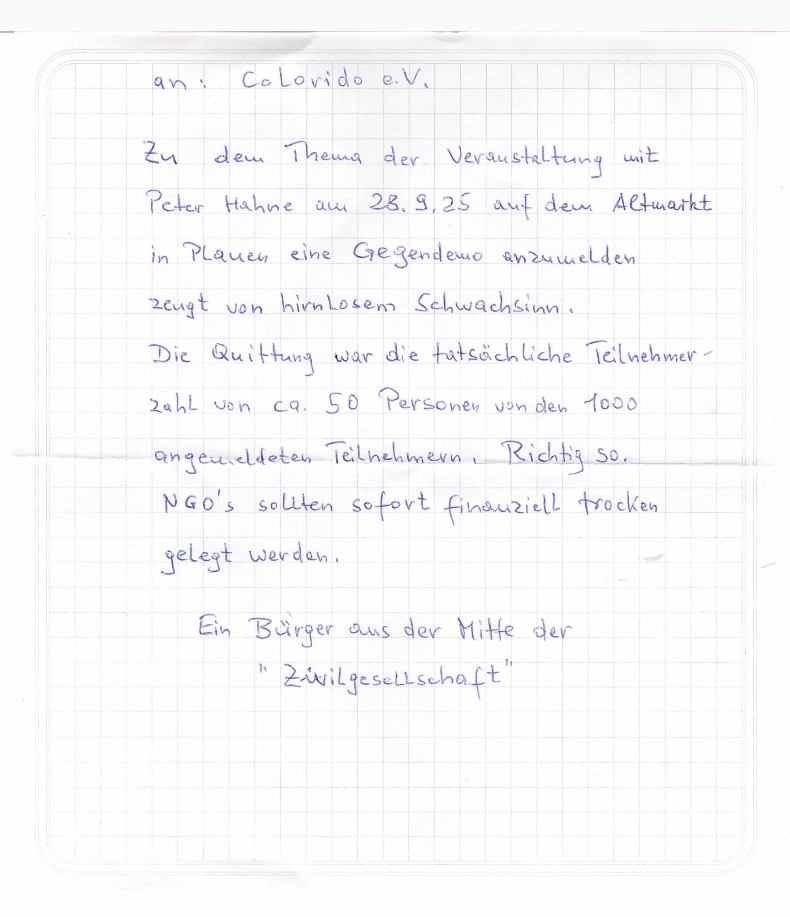 an: Colorido e.V.
Zu dem Thema der Veranstaltung mit
Peter Hahne am 28.9.25 auf dem Altmarkt
in Plauen eine Gegendemo anzumelden
zeugt von hirnlosem Schwachsinn.
Die Quittung war die tatsächliche Teilnehmer-
zahl von ca. 50 Personen von den 1000
angemeldeten Teilnehmern. Richtig so.
NGO's sollten sofort finanziell trocken
gelegt werden.
Ein Bürger aus der Mitte der
"Zivilgesellschaft"